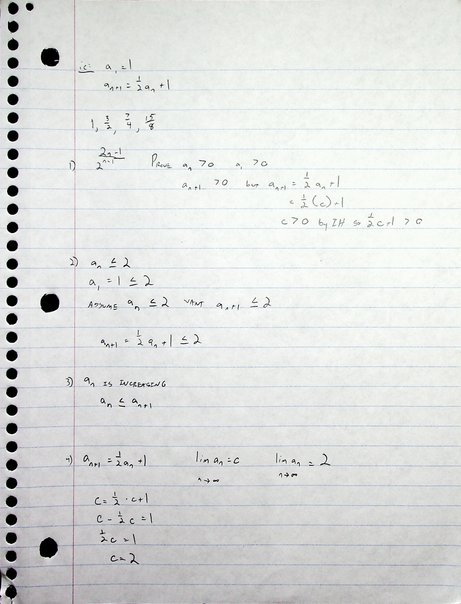 ie: a₁ = 1
aₙ₊₁ = ½aₙ + 1
1, 3/2, 7/4, 15/8
1) (2ₙ-1)/2ⁿ⁻¹ PROVE aₙ > 0 a₁ > 0
aₙ₊₁ > 0 but aₙ₊₁ = ½aₙ + 1
= ½(c) + 1
c > 0 by IH so ½c + 1 > 0
2) aₙ ≤ 2
a₁ = 1 ≤ 2
ASSUME aₙ ≤ 2 WANT aₙ₊₁ ≤ 2
aₙ₊₁ = ½aₙ + 1 ≤ 2
3) aₙ IS INCREASING
aₙ ≤ aₙ₊₁
4) aₙ₊₁ = ½aₙ + 1 lim aₙ = c lim aₙ = 2
n→∞ n→∞
c = ½ · c + 1
c - ½c = 1
½c = 1
c = 2